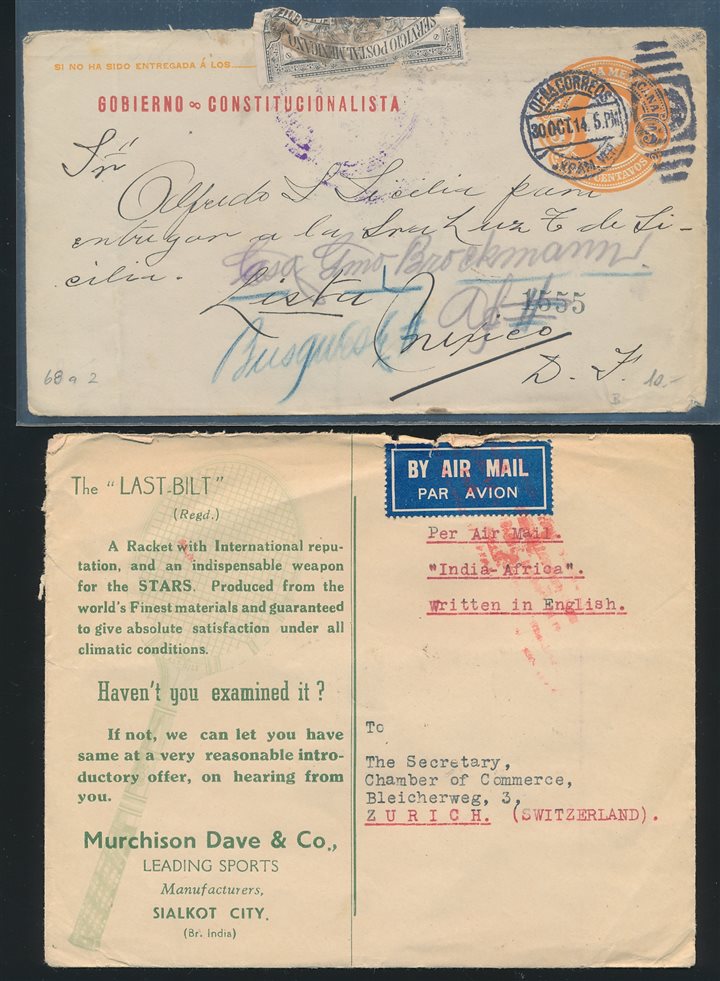 SERVICIO POSTAL MEXICANO
SI NO HA SIDO ENTREGADA Á LOS
GOBIERNO ∞ CONSTITUCIONALISTA
OFNA CORREOS
30 OCT. 14. 5. PM
CENTAVOS
Sñr
Alfredo L Sicilia para
entregar a la Sra Luz T de Si-
cilia.
Casa Gmo Brockmann
Lista
1555
México
D. F.
68 a 2
10.-
B
The "LAST-BILT"
(Regd.)
A Racket with International repu-
tation, and an indispensable weapon
for the STARS. Produced from the
world's Finest materials and guaranteed
to give absolute satisfaction under all
climatic conditions.
Haven't you examined it ?
If not, we can let you have
same at a very reasonable intro-
ductory offer, on hearing from
you.
Murchison Dave & Co.,
LEADING SPORTS
Manufacturers,
SIALKOT CITY.
(Br. India)
BY AIR MAIL
PAR AVION
Per Air Mail.
"India-Africa".
Written in English.
To
The Secretary,
Chamber of Commerce,
Bleicherweg, 3,
ZURICH. (SWITZERLAND).